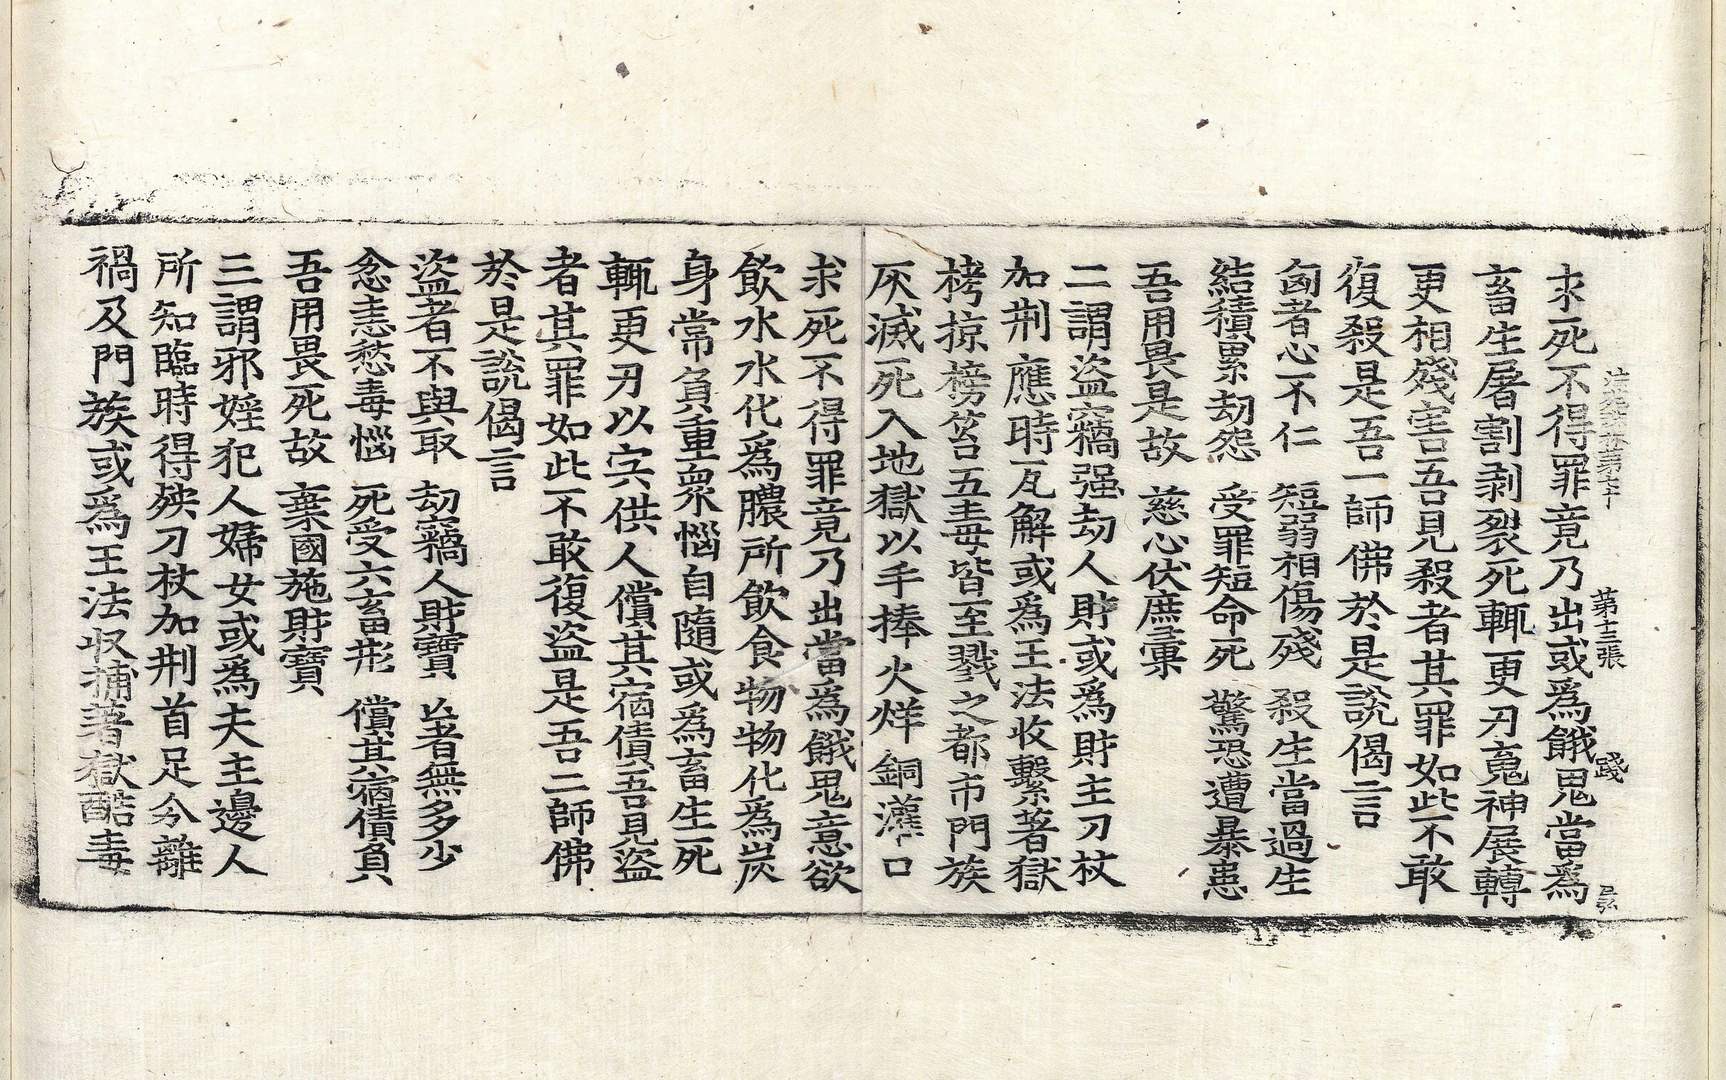 法苑珠林卷第七十 第十三張 踐
求死不得罪竟乃出或爲餓鬼當爲
畜生屠割剥裂死輒更刃䰟神展轉
更相殘害吾見殺者其罪如此不敢
復殺是吾一師佛於是說偈言
㐫者心不仁 短弱相傷殘 殺生當過生
結積累劫怨 受罪短命死 驚恐遭暴患
吾用畏是故 慈心伏庶彙
二謂盜竊强劫人財或爲財主刀杖
加荆應時瓦解或爲王法收繫著獄
栲掠榜笞五毒皆至戮之都市門族
灰滅死入地獄以手捧火烊銅灌口
求死不得罪竟乃出當爲餓鬼意欲
飲水水化爲膿所飲食物物化爲炭
身常負重衆惱自隨或爲畜生死
輒更刃以宍供人償其宿債吾見盜
者其罪如此不敢復盜是吾二師佛
於是說偈言
盜者不與取 劫竊人財寶 亾者無多少
忿恚愁毒惱 死受六畜形 償其宿債負
吾用畏死故 棄國施財寶
三謂邪婬犯人婦女或爲夫主邊人
所知臨時得殃刀杖加荆首足分離
禍及門族或爲王法収捕著獄酷毒